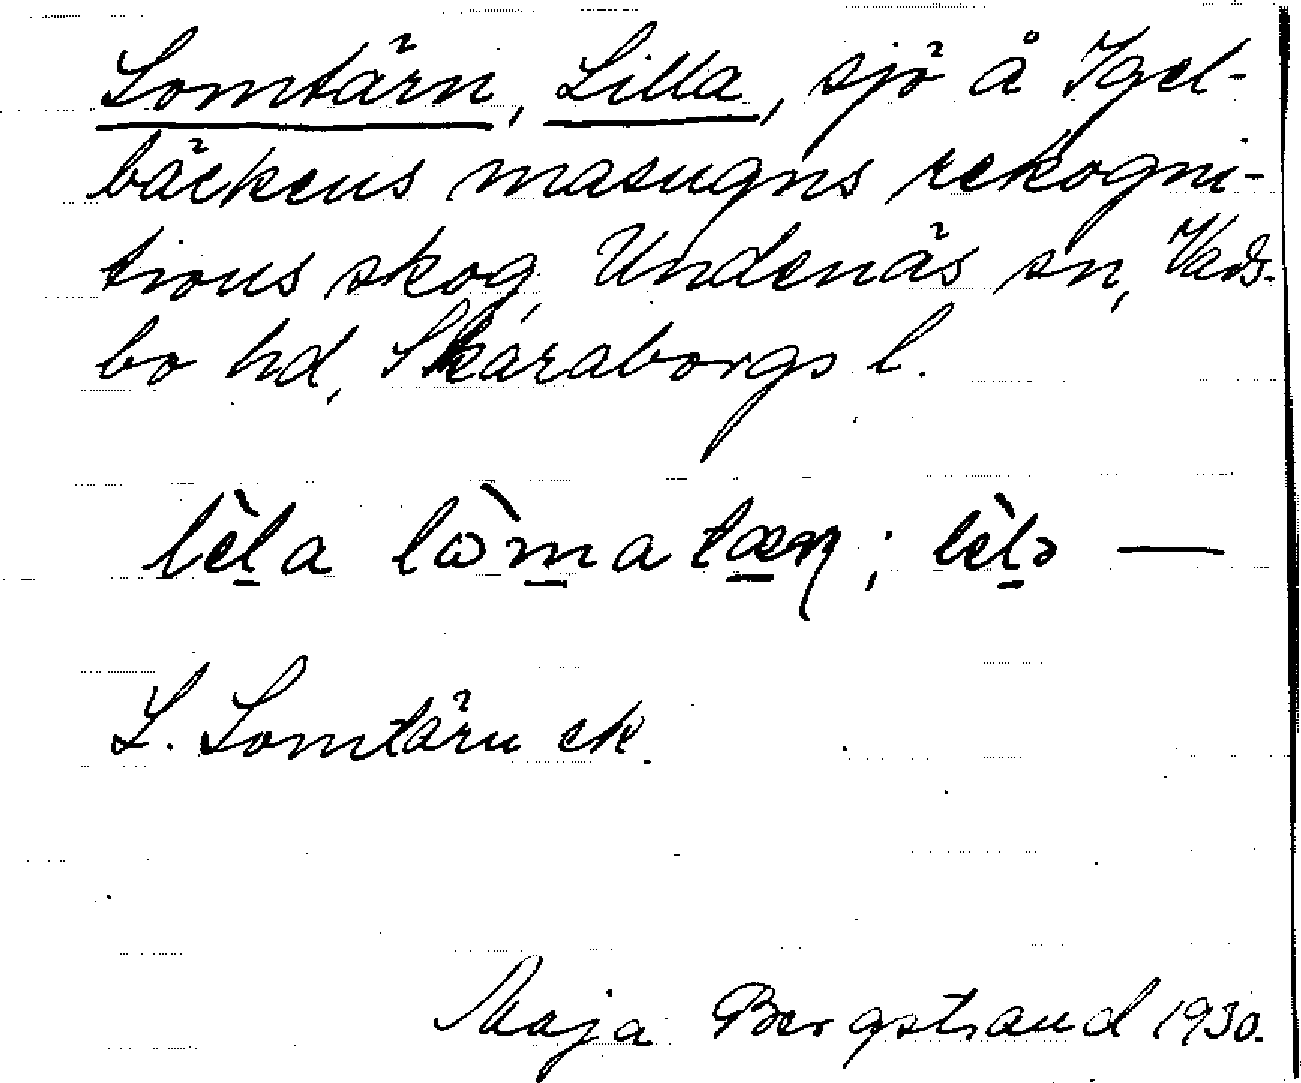 Lomtärn, Lilla, sjö å Igel-
bäckens masugns rekogni-
tions skog, Undenäs sn, Vads-
bo hd, Skaraborgs l.
lèla lòmatæɳ; lèlə —
L. Lomtärn ek.
Maja Bergstrand 1930.